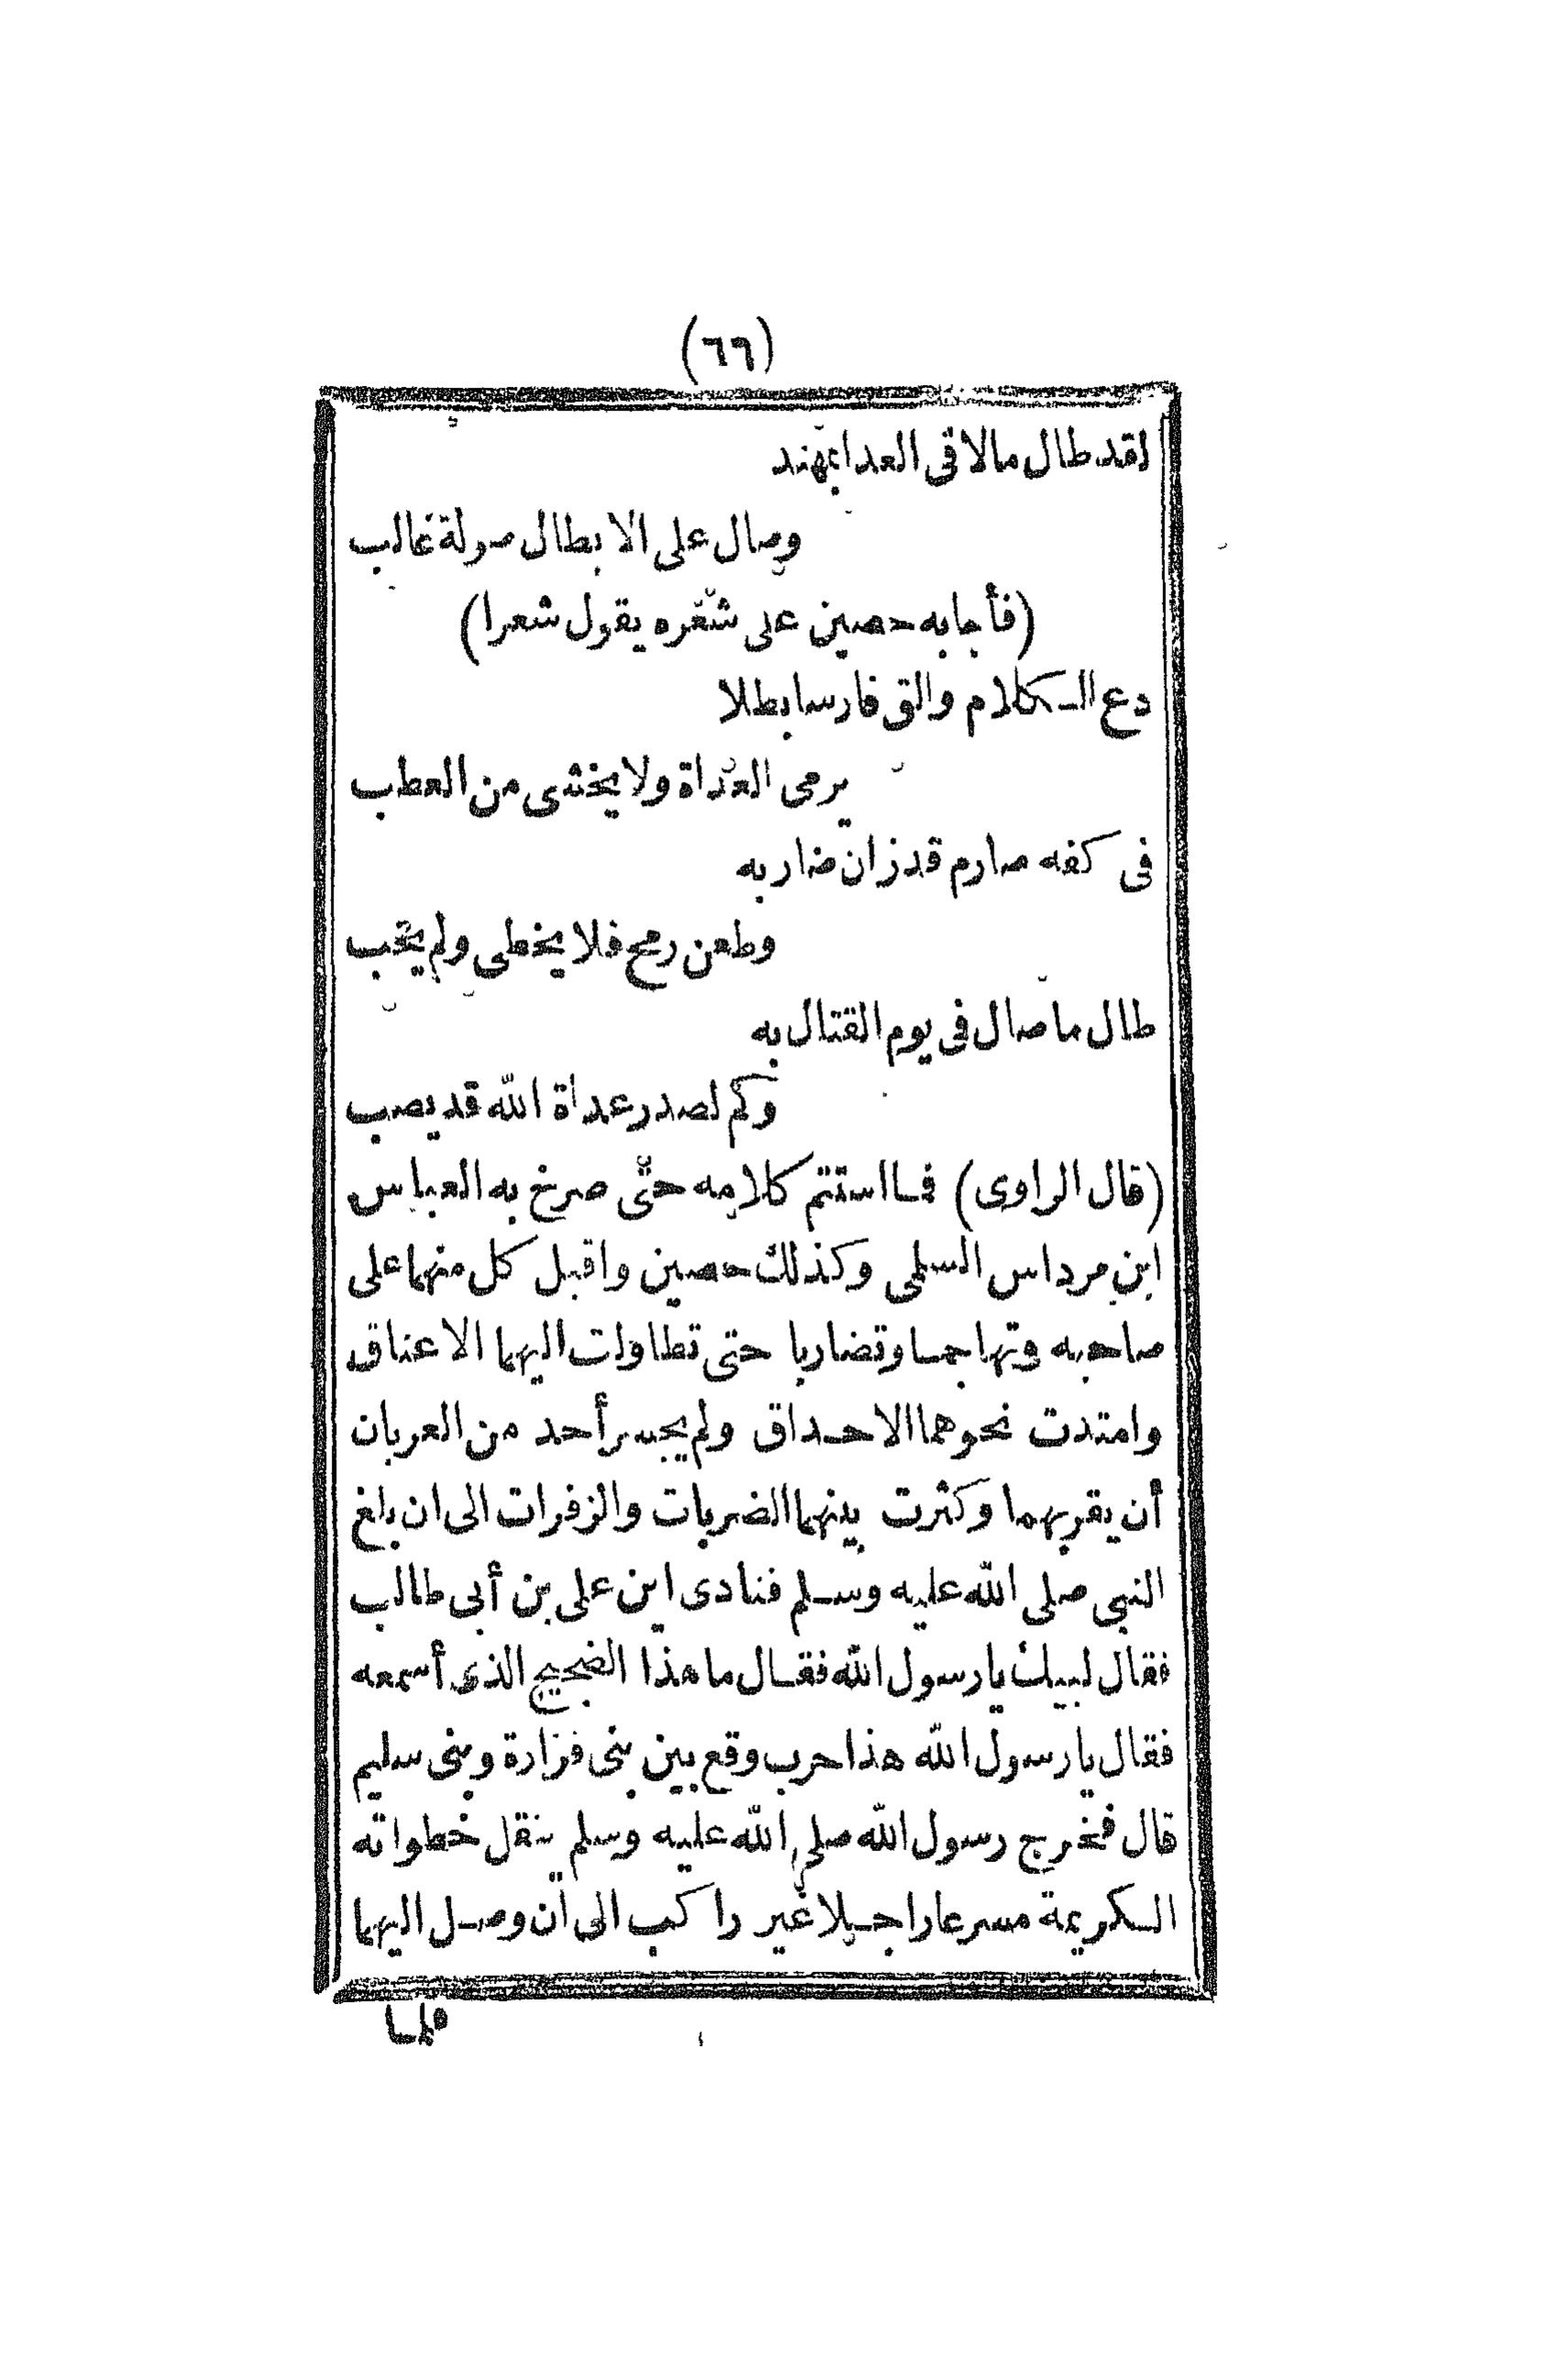 (٦٦)
لقد طال مالاقى العدا بمهند
وصال على الابطال صولة غالب
(فأجابه حصين على شعره يقول شعرا)
دع الكلام والق فارسا بطلا
يرمى العداة ولا يخشى من العطب
فى كفه صارم قد زان ضاربه
وطعن رمح فلا يخطى ولم يخب
طال ما صال فى يوم القتال به
وكم لصدر عداة الله قد يصب
(قال الراوى) فما استتم كلامه حتى صرخ به العباس
ابن مرداس السلمى وكذلك حصين واقبل كل منهما على
صاحبه وتهاجما وتضاربا حتى تطاولت اليهما الاعناق
وامتدت نحوهما الاحداق ولم يجسر أحد من العربان
أن يقربهما وكثرت بينهما الضربات والزفرات الى ان بلغ
النبى صلى الله عليه وسلم فنادى اين على بن أبى طالب
فقال لبيك يا رسول الله فقال ما هذا الضجيج الذى أسمعه
فقال يا رسول الله هذا حرب وقع بين بنى فزارة وبنى سليم
قال فخرج رسول الله صلى الله عليه وسلم ينقل خطواته
الكريمة مسرعا راجلا غير راكب الى أن وصل اليهما
فلما